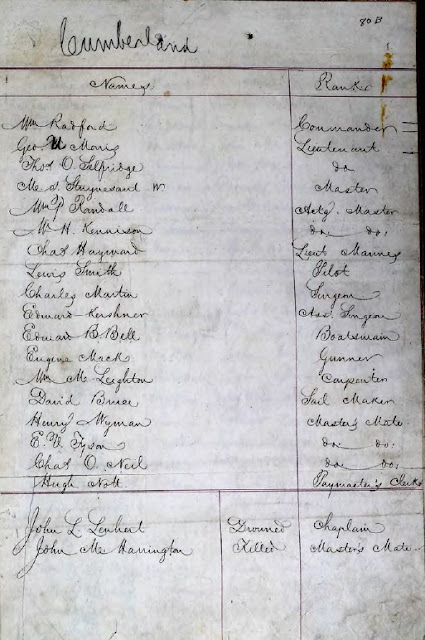 80 B
Cumberland
Names Ranks
Wm Radford Commander
Geo. U Morris Lieutenant
Thos O. Selfridge do
M. S. Stuyvesant Master
Wm P. Randall Actg. Master
W. H. Kennison do do.
Chas Hayward Lieut Marines
Lewis Smith Pilot
Charles Martin Surgeon
Edward Kershner Ass. Surgeon
Edward B. Bell Boatswain
Eugene Mack Gunner
Wm M. Leighton Carpenter
David Bruce Sail Maker
Henry Wyman Master's Mate
E. V. Tyson do. do.
Chas O. Neil do. do.
Hugh Nott Paymaster's Clerk
John L Lenhart Drowned Chaplain
John M. Harrington Killed Master's Mate